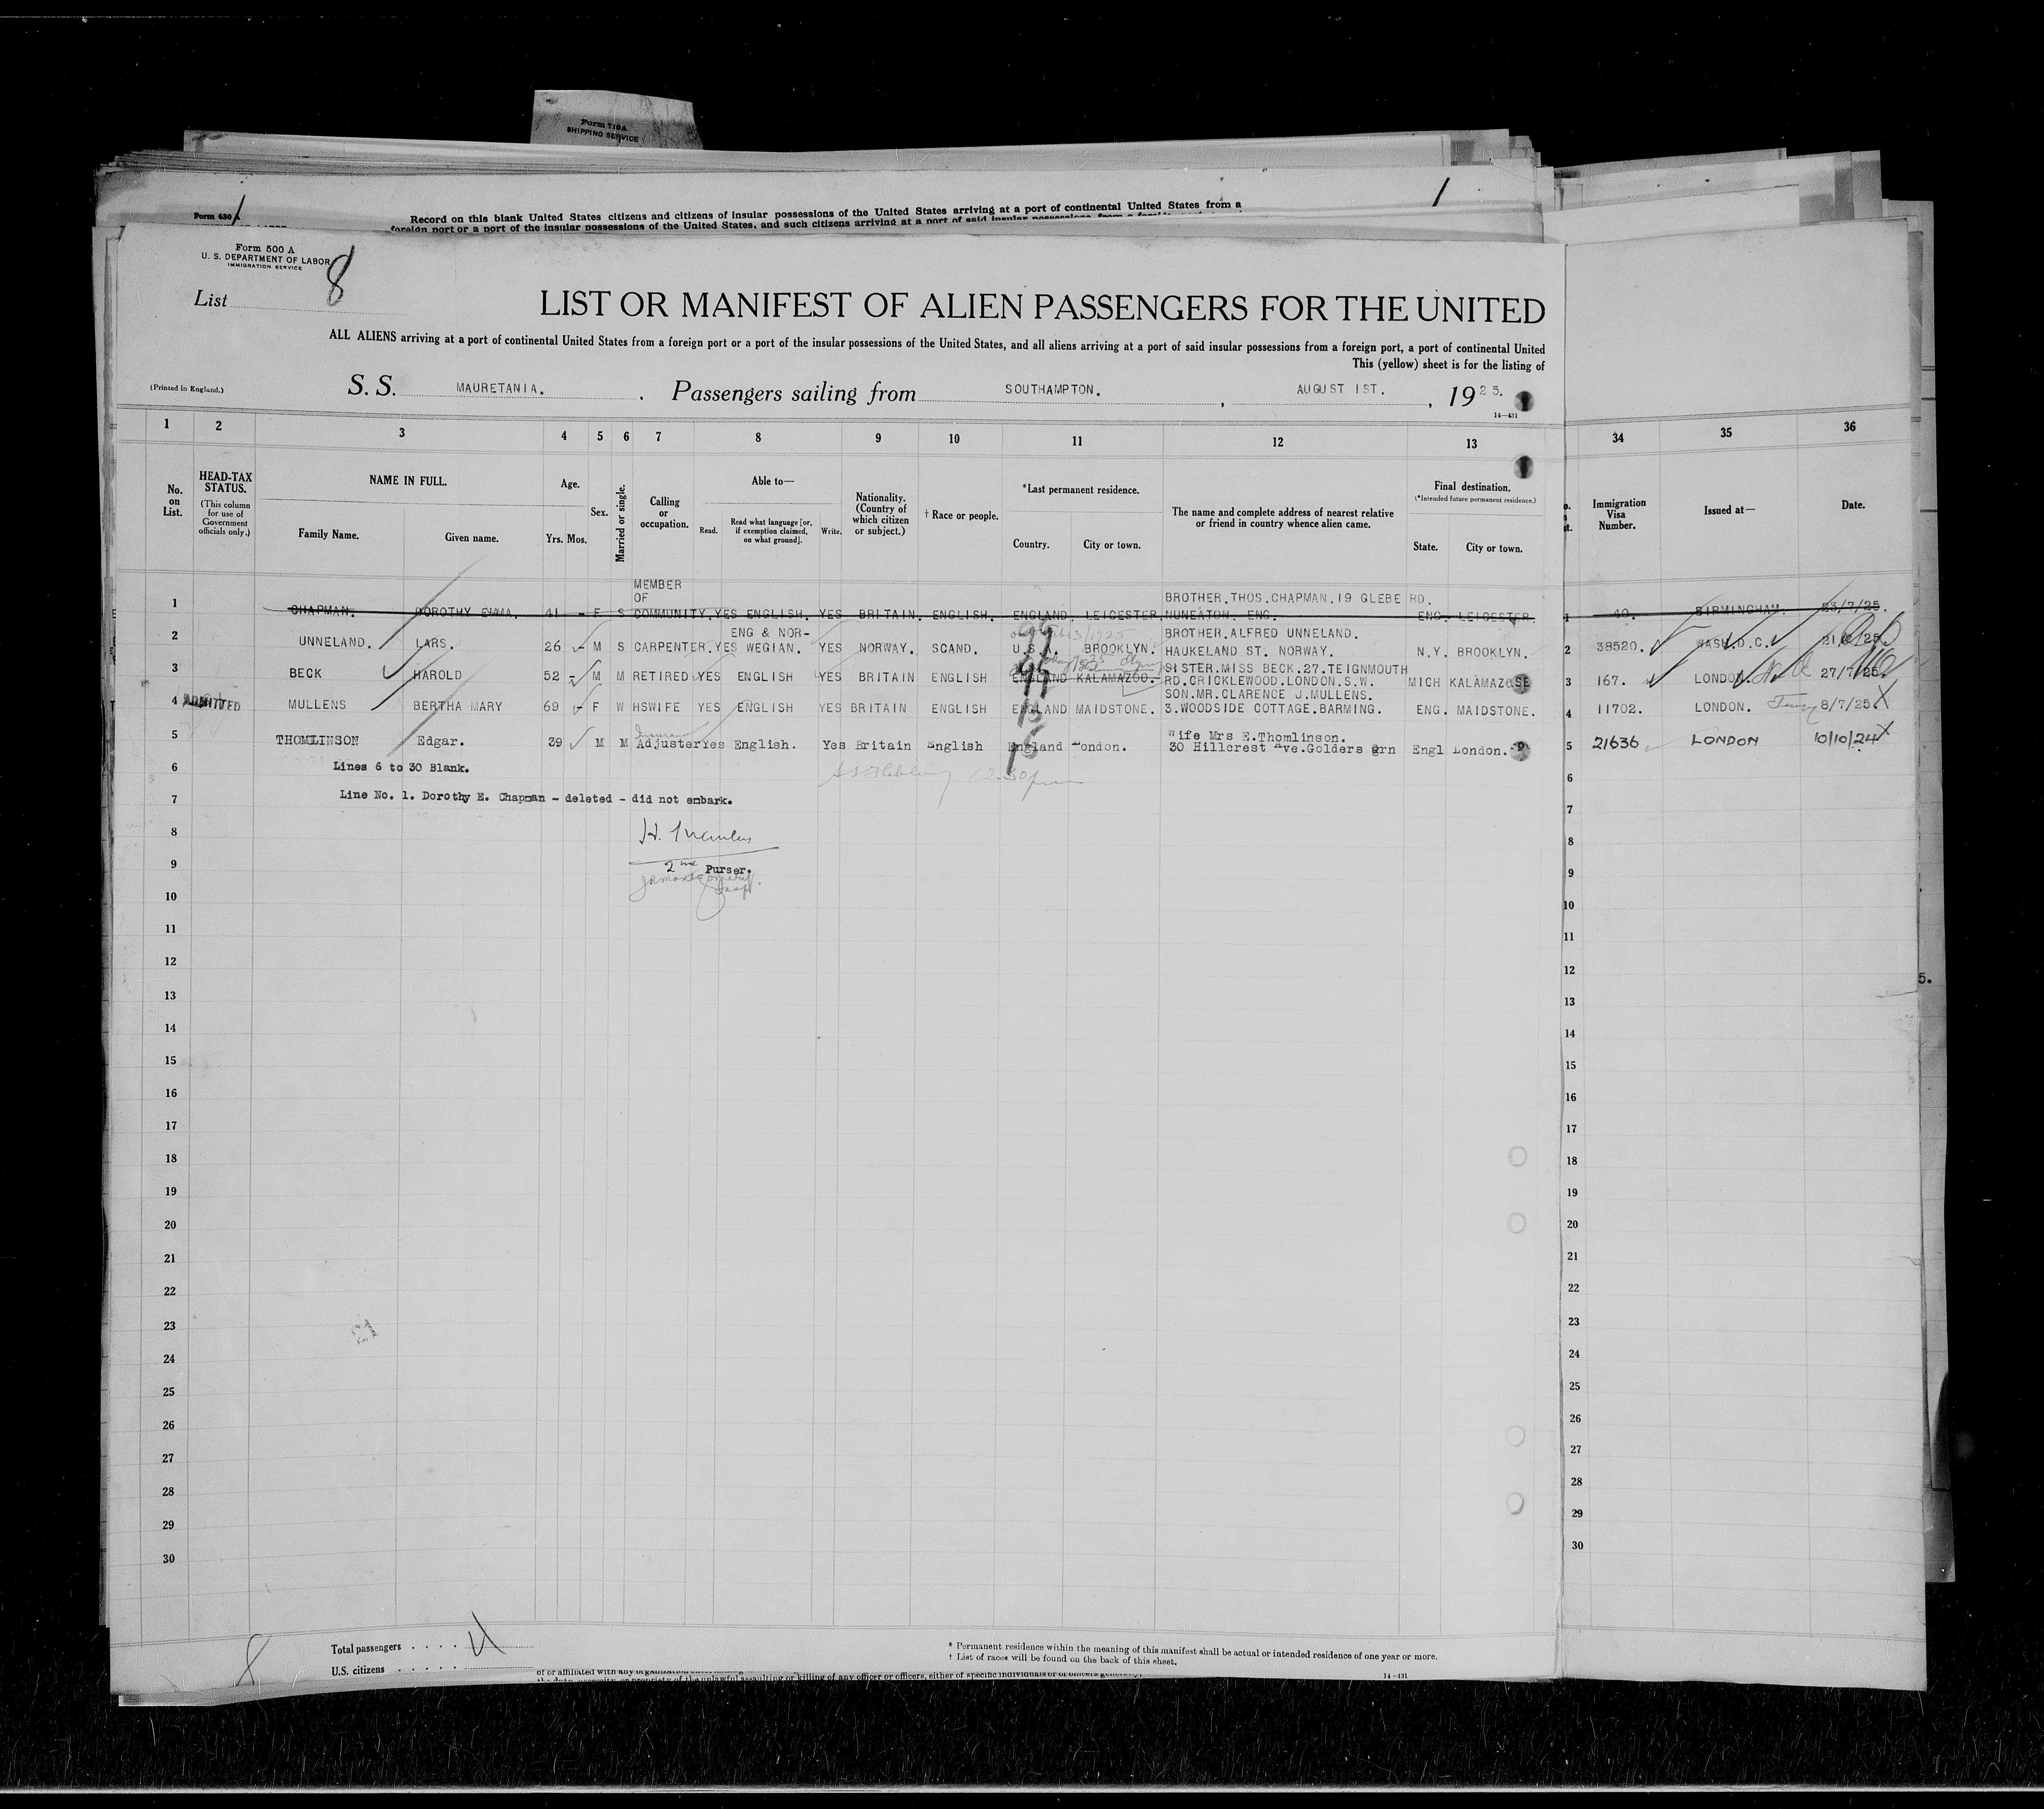 Form 710A
SHIPPING SERVICE
Form 630 A
Record on this blank United States citizens and citizens of insular possessions of the United States arriving at a port of continental United States from a
foreign port or a port of the insular possessions of the United States, and such citizens arriving at a port of said insular possessions from a
Form 500 A
U. S. DEPARTMENT OF LABOR
IMMIGRATION SERVICE
List 8
LIST OR MANIFEST OF ALIEN PASSENGERS FOR THE UNITED
ALL ALIENS arriving at a port of continental United States from a foreign port or a port of the insular possessions of the United States, and all aliens arriving at a port of said insular possessions from a foreign port, a port of continental United
This (yellow) sheet is for the listing of
(Printed in England.) S. S. MAURETANIA. Passengers sailing from SOUTHAMPTON. , AUGUST 1ST. , 1925.
14—431
1 2 3 4 5 6 7 8 9 10 11 12 13 34 35 36
No. on List.
HEAD-TAX STATUS.
(This column for use of Government officials only.)
NAME IN FULL.
Family Name. Given name.
Age.
Yrs. Mos.
Sex.
Married or single.
Calling or occupation.
Able to—
Read. Read what language [or, if exemption claimed, on what ground]. Write.
Nationality. (Country of which citizen or subject.)
† Race or people.
*Last permanent residence.
Country. City or town.
The name and complete address of nearest relative or friend in country whence alien came.
Final destination.
(*Intended future permanent residence.)
State. City or town.
Immigration Visa Number.
Issued at—
Date.
MEMBER
OF BROTHER.THOS.CHAPMAN.19 GLEBE RD.
1 CHAPMAN. DOROTHY EMMA. 41 - F S COMMUNITY. YES ENGLISH. YES BRITAIN. ENGLISH. ENGLAND. LEICESTER. NUNEATON. ENG. ENG. LEICESTER 1 40. BIRMINGHAM. 23/7/25.
ENG & NOR- BROTHER.ALFRED UNNELAND.
2 UNNELAND. LARS. 26 - M S CARPENTER. YES WEGIAN. YES NORWAY. SCAND. U.S.A. BROOKLYN. HAUKELAND ST. NORWAY. N.Y. BROOKLYN. 2 38520. WASH.D.C.
SISTER.MISS BECK.27.TEIGNMOUTH
3 BECK HAROLD 52 - M M RETIRED YES ENGLISH YES BRITAIN ENGLISH ENGLAND KALAMAZOO. RD.CRICKLEWOOD.LONDON.S.W. MICH 3 167. LONDON. 27/7/25.
SON.MR.CLARENCE J.MULLENS.
4 ADMITTED MULLENS BERTHA MARY 69 - F W HSWIFE YES ENGLISH YES BRITAIN ENGLISH ENGLAND MAIDSTONE. 3.WOODSIDE COTTAGE.BARMING. ENG. MAIDSTONE. 4 11702. LONDON. 8/7/25 X
Wife Mrs E.Thomlinson.
5 THOMLINSON Edgar. 39 M M Adjuster Yes English. Yes Britain English England London. 30 Hillcrest Ave.Golders grn Engl London. 5 21636 LONDON 10/10/24 X
6 Lines 6 to 30 Blank. 6
7 Line No. 1. Dorothy E. Chapman - deleted - did not embark. 7
8 8
9 2nd Purser. 9
10 10
11 11
12 12
13 13
14 14
15 15
16 16
17 17
18 18
19 19
20 20
21 21
22 22
23 23
24 24
25 25
26 26
27 27
28 28
29 29
30 30
Total passengers . . . .
U.S. citizens . . . . .
* Permanent residence within the meaning of this manifest shall be actual or intended residence of one year or more.
† List of races will be found on the back of this sheet.
14—431